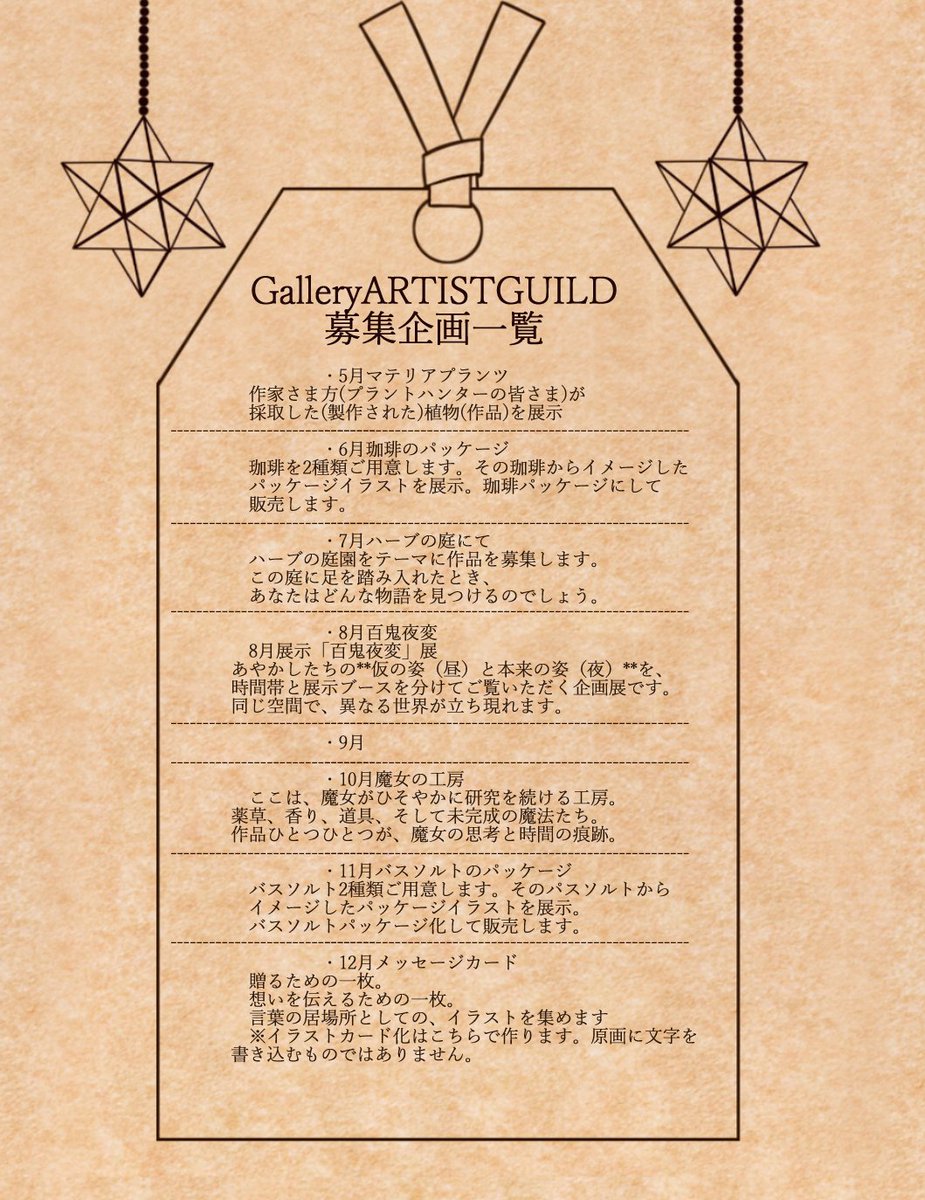 GalleryARTISTGUILD
募集企画一覧
・5月マテリアプランツ
作家さま方(プラントハンターの皆さま)が
採取した(製作された)植物(作品)を展示
・6月珈琲のパッケージ
珈琲を2種類ご用意します。その珈琲からイメージした
パッケージイラストを展示。珈琲パッケージにして
販売します。
・7月ハーブの庭にて
ハーブの庭園をテーマに作品を募集します。
この庭に足を踏み入れたとき、
あなたはどんな物語を見つけるのでしょう。
・8月百鬼夜変
8月展示「百鬼夜変」展
あやかしたちの**仮の姿（昼）と本来の姿（夜）**を、
時間帯と展示ブースを分けてご覧いただく企画展です。
同じ空間で、異なる世界が立ち現れます。
・9月
・10月魔女の工房
ここは、魔女がひそやかに研究を続ける工房。
薬草、香り、道具、そして未完成の魔法たち。
作品ひとつひとつが、魔女の思考と時間の痕跡。
・11月バスソルトのパッケージ
バスソルト2種類ご用意します。そのバスソルトから
イメージしたパッケージイラストを展示。
バスソルトパッケージ化して販売します。
・12月メッセージカード
贈るための一枚。
想いを伝えるための一枚。
言葉の居場所としての、イラストを集めます
※イラストカード化はこちらで作ります。原画に文字を
書き込むものではありません。